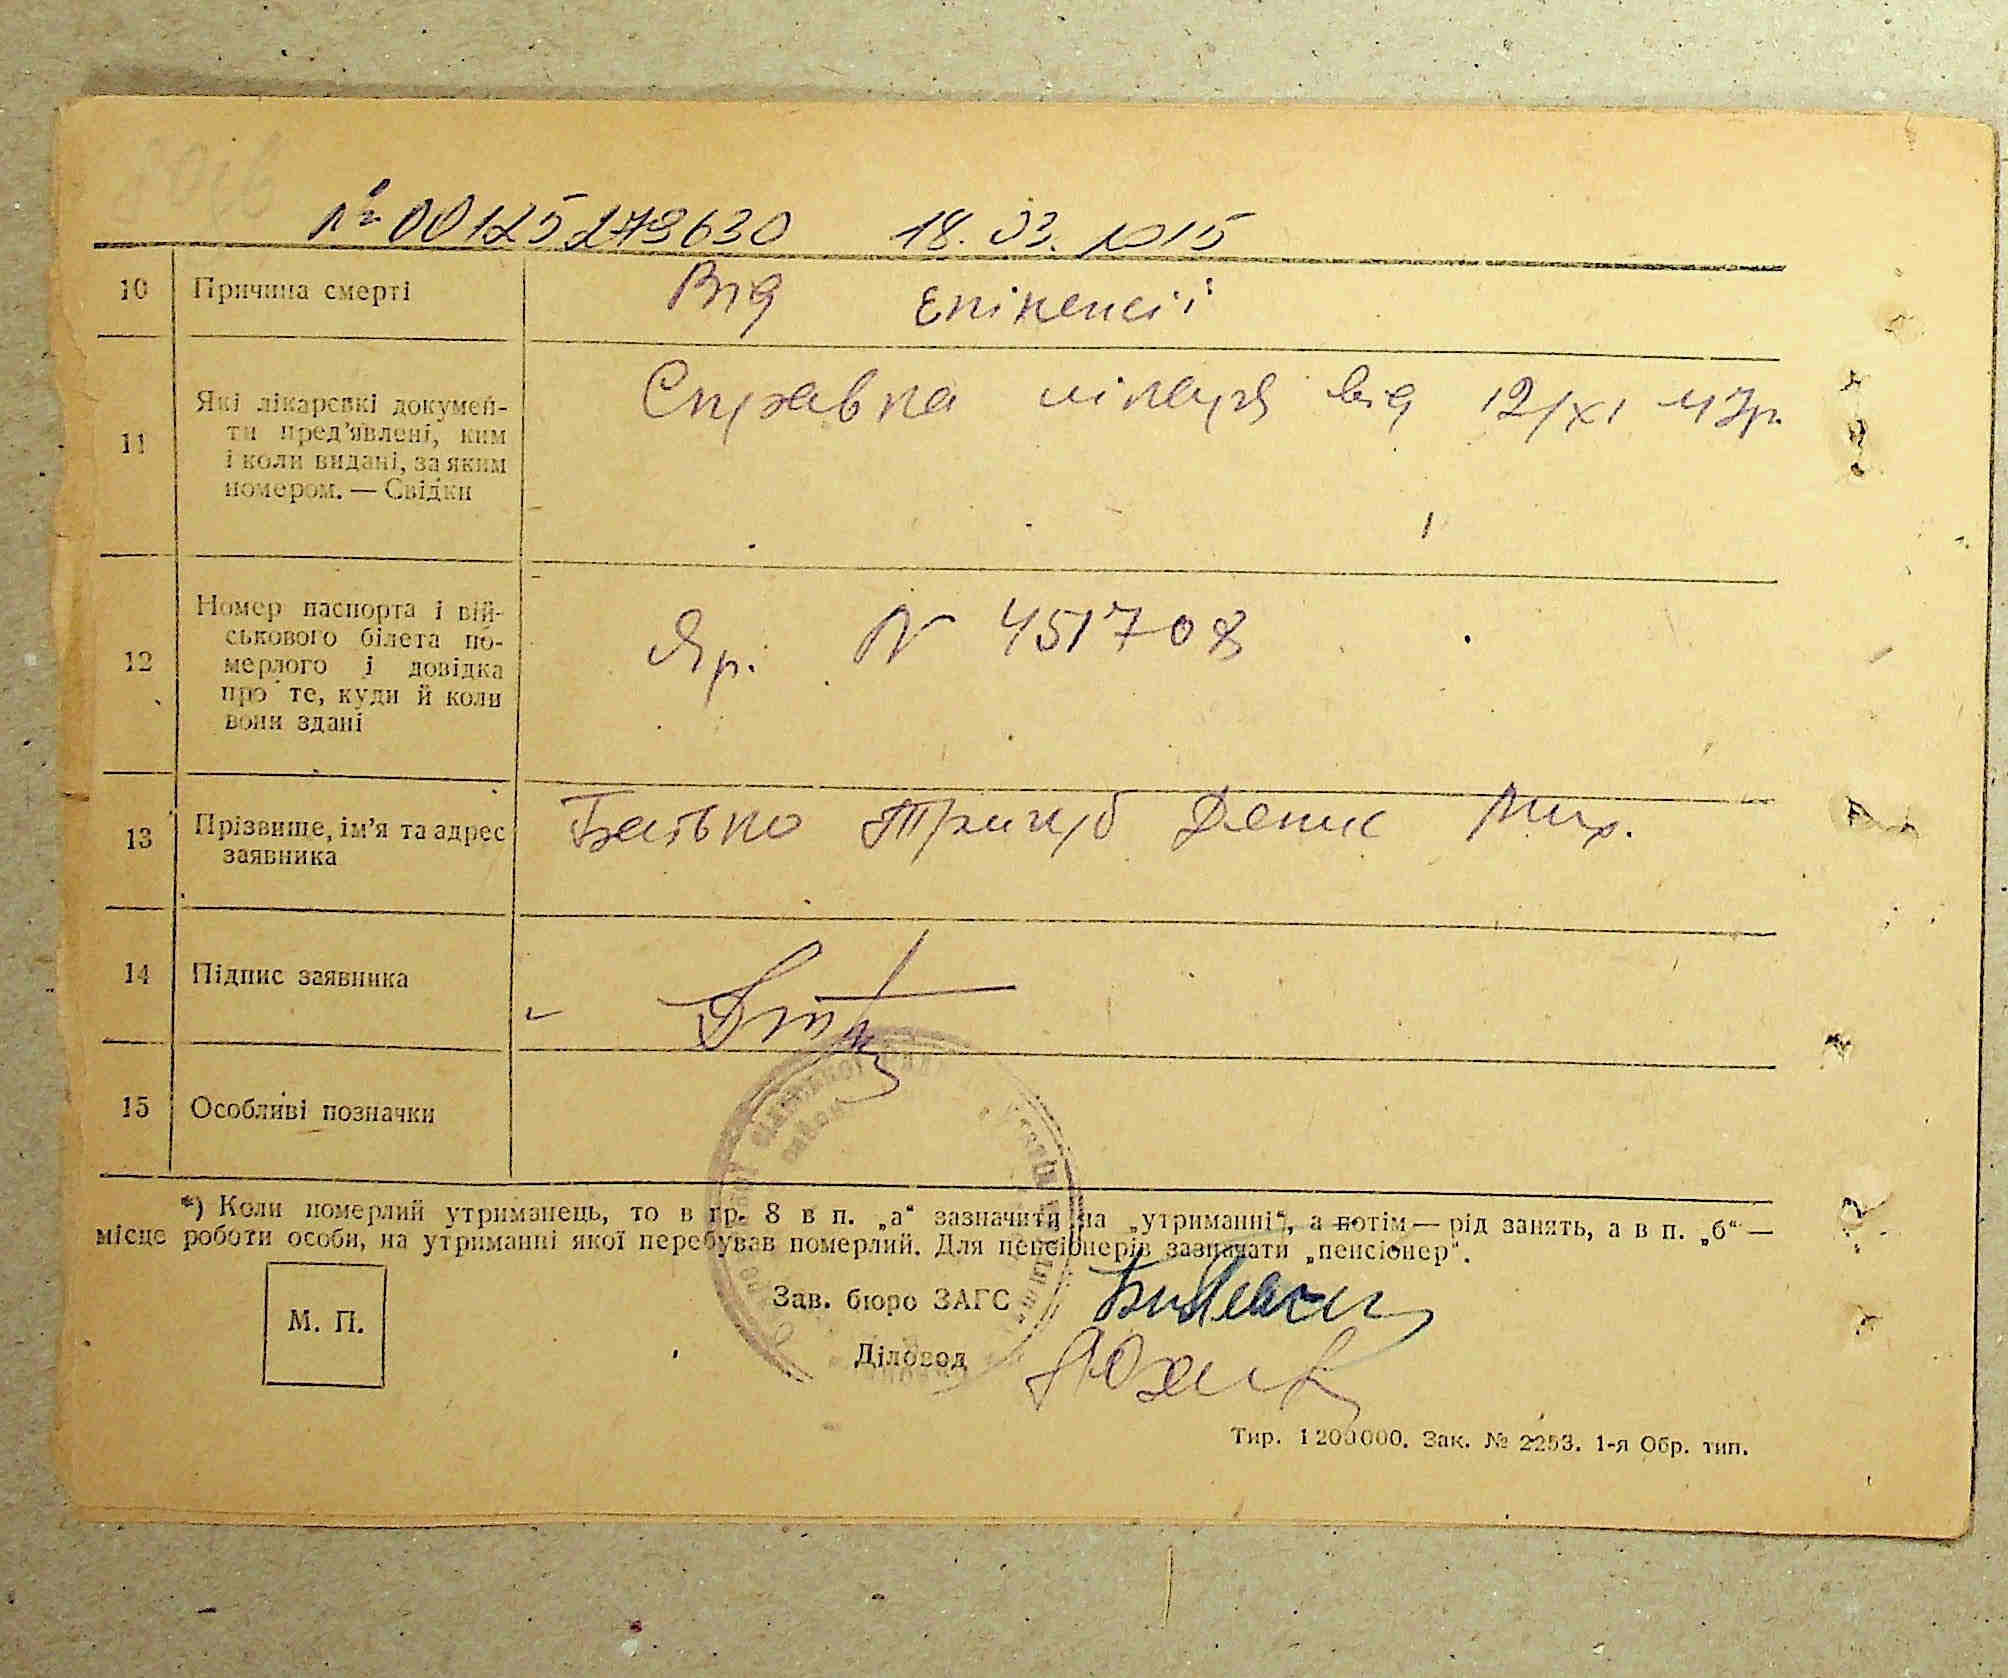 № 00125279630 18.03.2015
10 Причина смерті Від епілепсії
11 Які лікарські докумен-
ти пред'явлені, ким
і коли видані, за яким
номером. — Свідки
Справка лікаря від 12/XI 43р.
12 Номер паспорта і вій-
ськового білета по-
мерлого і довідка
про те, куди й коли
вони здані
Яр. N 451708
13 Прізвище, ім'я та адрес
заявника
Батько Тригуб Денис Мих.
14 Підпис заявника
15 Особливі позначки
*) Коли померлий утриманець, то в гр. 8 в п. „а“ зазначити на „утриманні“, а потім — рід занять, а в п. „б“ —
місце роботи особи, на утриманні якої перебував померлий. Для пенсіонерів зазначати „пенсіонер“.
Зав. бюро ЗАГС
М. П.
Діловод
Тир. 1200000. Зак. № 2253. 1-я Обр. тип.